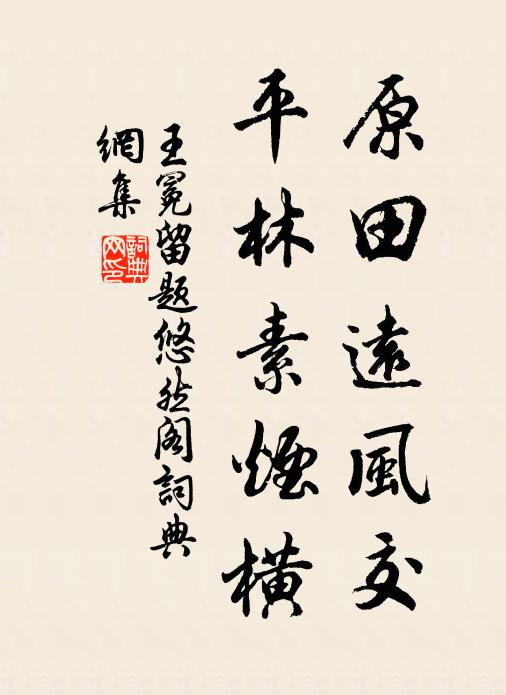 原田遠風交
平林素煙橫
王冕留題悠然阁詞典
網集
詞典
网印